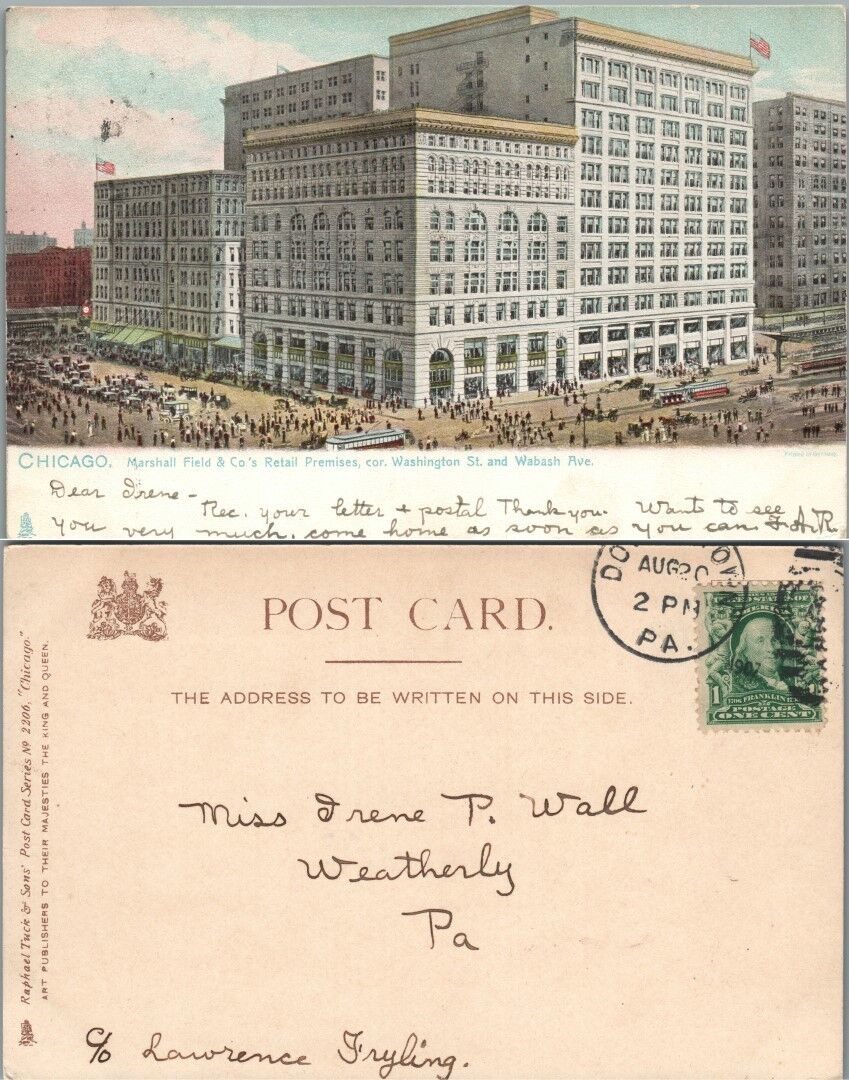 CHICAGO. Marshall Field & Co.'s Retail Premises, cor. Washington St. and Wabash Ave.
Printed in Germany.
Dear Irene -
Rec. your letter + postal Thank you. Wants to see
you very much. come home as soon as you can.
POST CARD.
THE ADDRESS TO BE WRITTEN ON THIS SIDE.
AUG 20
2 PM
PA.
1907
1 FRANKLIN
POSTAGE
ONE CENT
Raphael Tuck & Sons' Post Card Series Nº 2206, "Chicago."
ART PUBLISHERS TO THEIR MAJESTIES THE KING AND QUEEN.
Miss Irene P. Wall
Weatherly
Pa
c/o Lawrence Fryling.